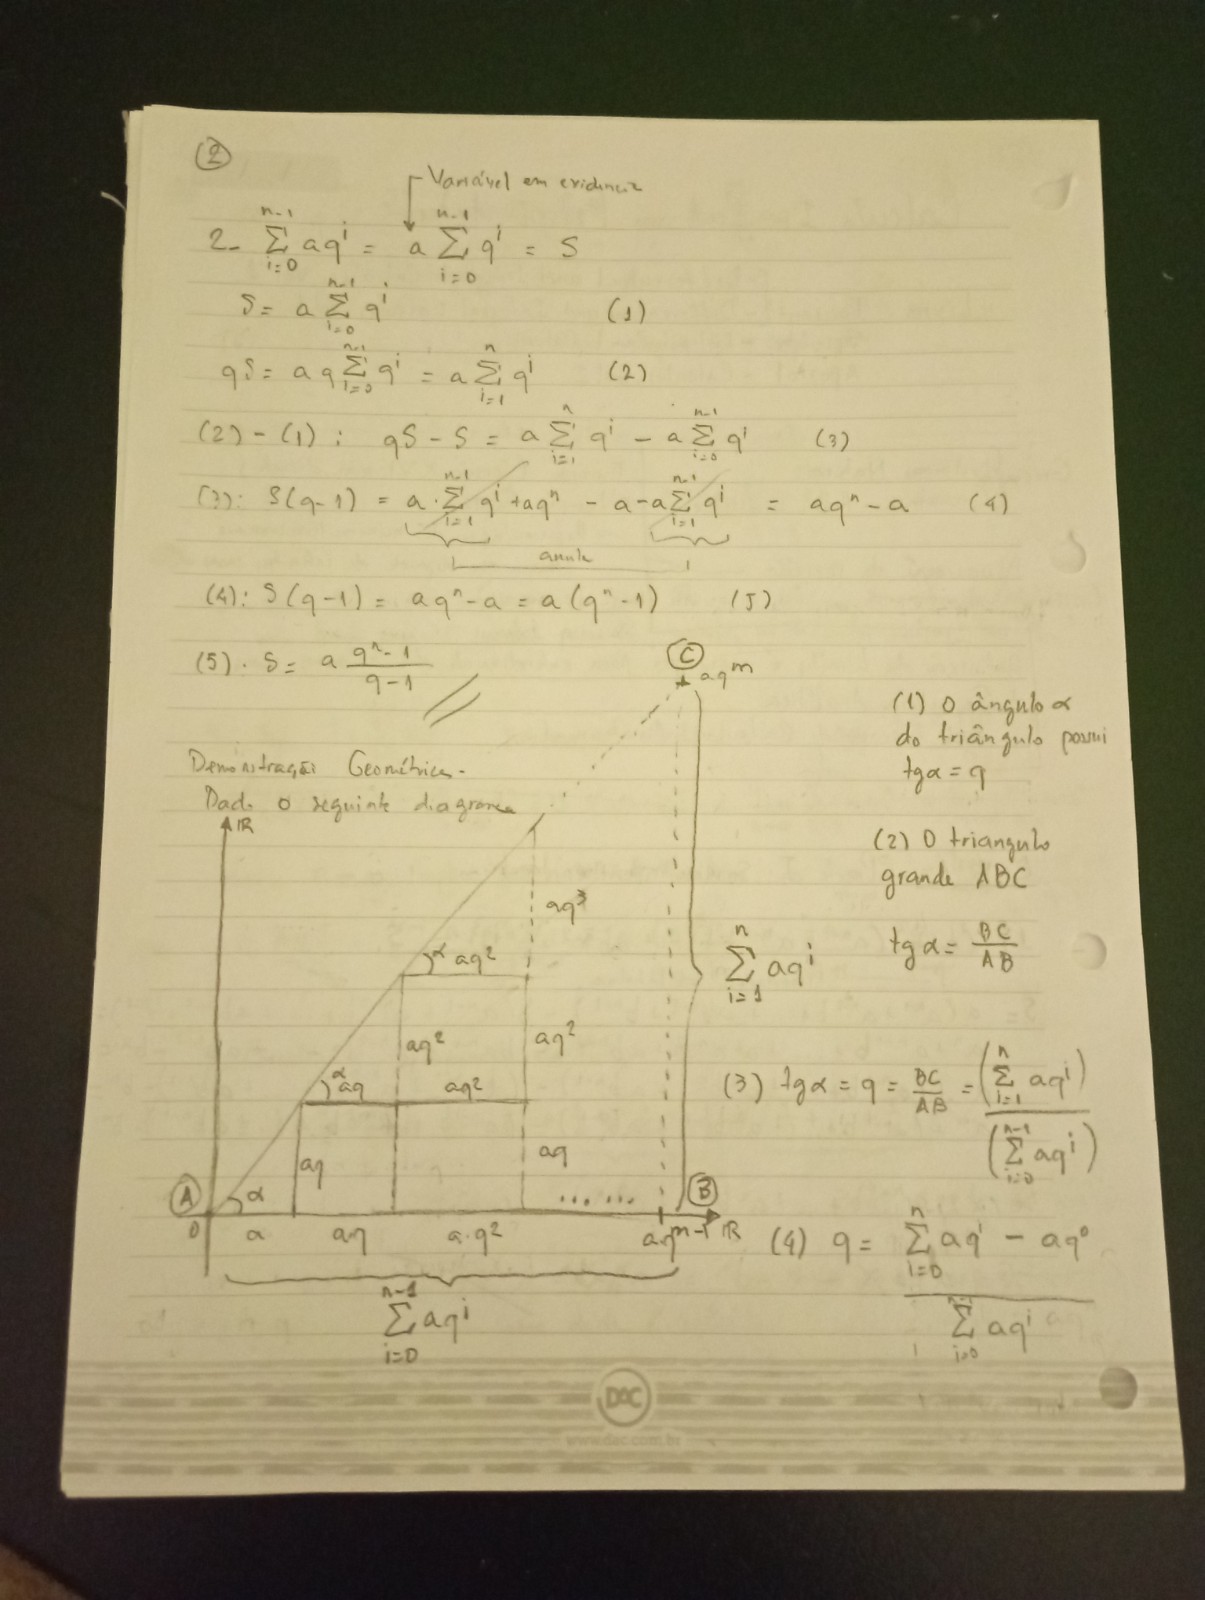 ②
Variável em evidência
2- ∑_{i=0}^{n-1} aq^i = a ∑_{i=0}^{n-1} q^i = S
S = a ∑_{i=0}^{n-1} q^i (1)
qS = a q ∑_{i=0}^{n-1} q^i = a ∑_{i=1}^{n} q^i (2)
(2)-(1): qS - S = a ∑_{i=1}^{n} q^i - a ∑_{i=0}^{n-1} q^i (3)
(3): S(q-1) = a·∑_{i=1}^{n-1} q^i + aq^n - a - a∑_{i=1}^{n-1} q^i = aq^n - a (4)
anula
(4): S(q-1) = aq^n - a = a(q^n - 1) (5)
(5). S = a (q^n - 1)/(q - 1)
Demonstração Geométrica-
Dado o seguinte diagrama
IR
C
aq^m
aq^3
α aq^2
aq^2
aq^2
α aq
aq^2
aq
aq
A
α
......
B
0
a
aq
a·q^2
aq^{m-1}
IR
∑_{i=0}^{n-1} aq^i
∑_{i=1}^{n} aq^i
(1) O ângulo α
do triângulo possui
tgα = q
(2) O triangulo
grande ABC
tgα = BC/AB
(3) tgα = q = BC/AB = (∑_{i=1}^{n} aq^i)/(∑_{i=0}^{n-1} aq^i)
(4) q = (∑_{i=0}^{n} aq^i - aq^0)/(∑_{i=0}^{n-1} aq^i)
DAC
www.dac.com.br